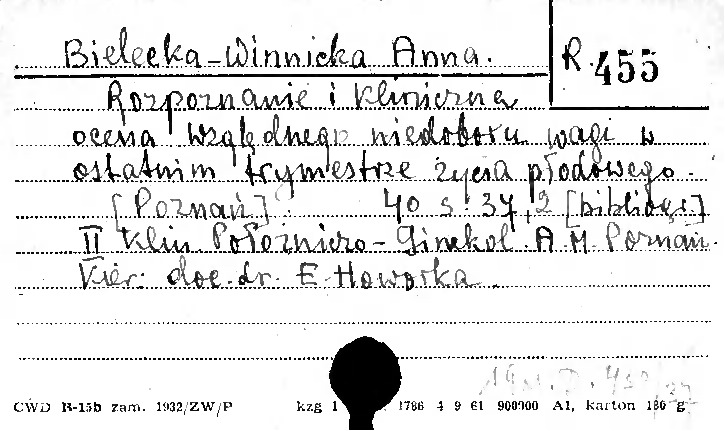 Bielecka-Winnicka Anna.
R. 455
Rozpoznanie i kliniczna
ocena względnego niedoboru wagi w
ostatnim trymestrze życia płodowego.
[Poznań]. 40 s. 37, 2 [bibliogr]
II Klin Położniczo-Ginekol. A M Poznań.
Kier: doc. dr. E. Howorka.
CWD R-15b zam. 1932/ZW/P kzg 1 1786 4 9 61 900900 A1, karton 180 g